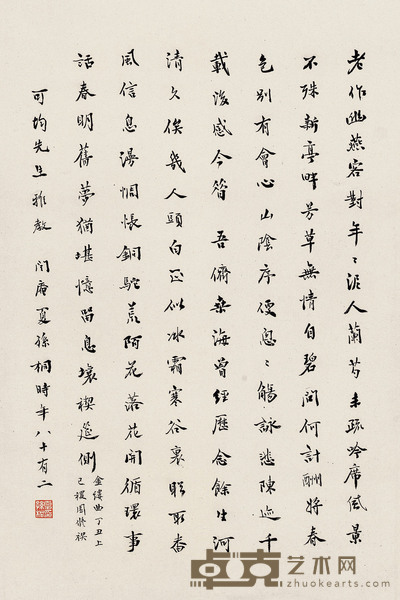 老作幽燕客對年〻泥人蘭芍未疏吟席風景
不殊新亭畔芳草無情自碧問何計酬將春
色別有會心山陰序便悤〻觴詠悲陳迹千
載後感今昔 吾儕桑海曾經歷念餘生河
清久俟幾人頭白正似冰霜寒谷裏盼取番
風信息漫惆悵銅駝荒陌花落花開循環事
話春明舊夢猶堪憶留息壤禊筵側
金縷曲丁丑上
巳稷園脩禊
可均先生雅教 閏庵夏孫桐時年八十有二
卓克艺术网
zhuokearts.com